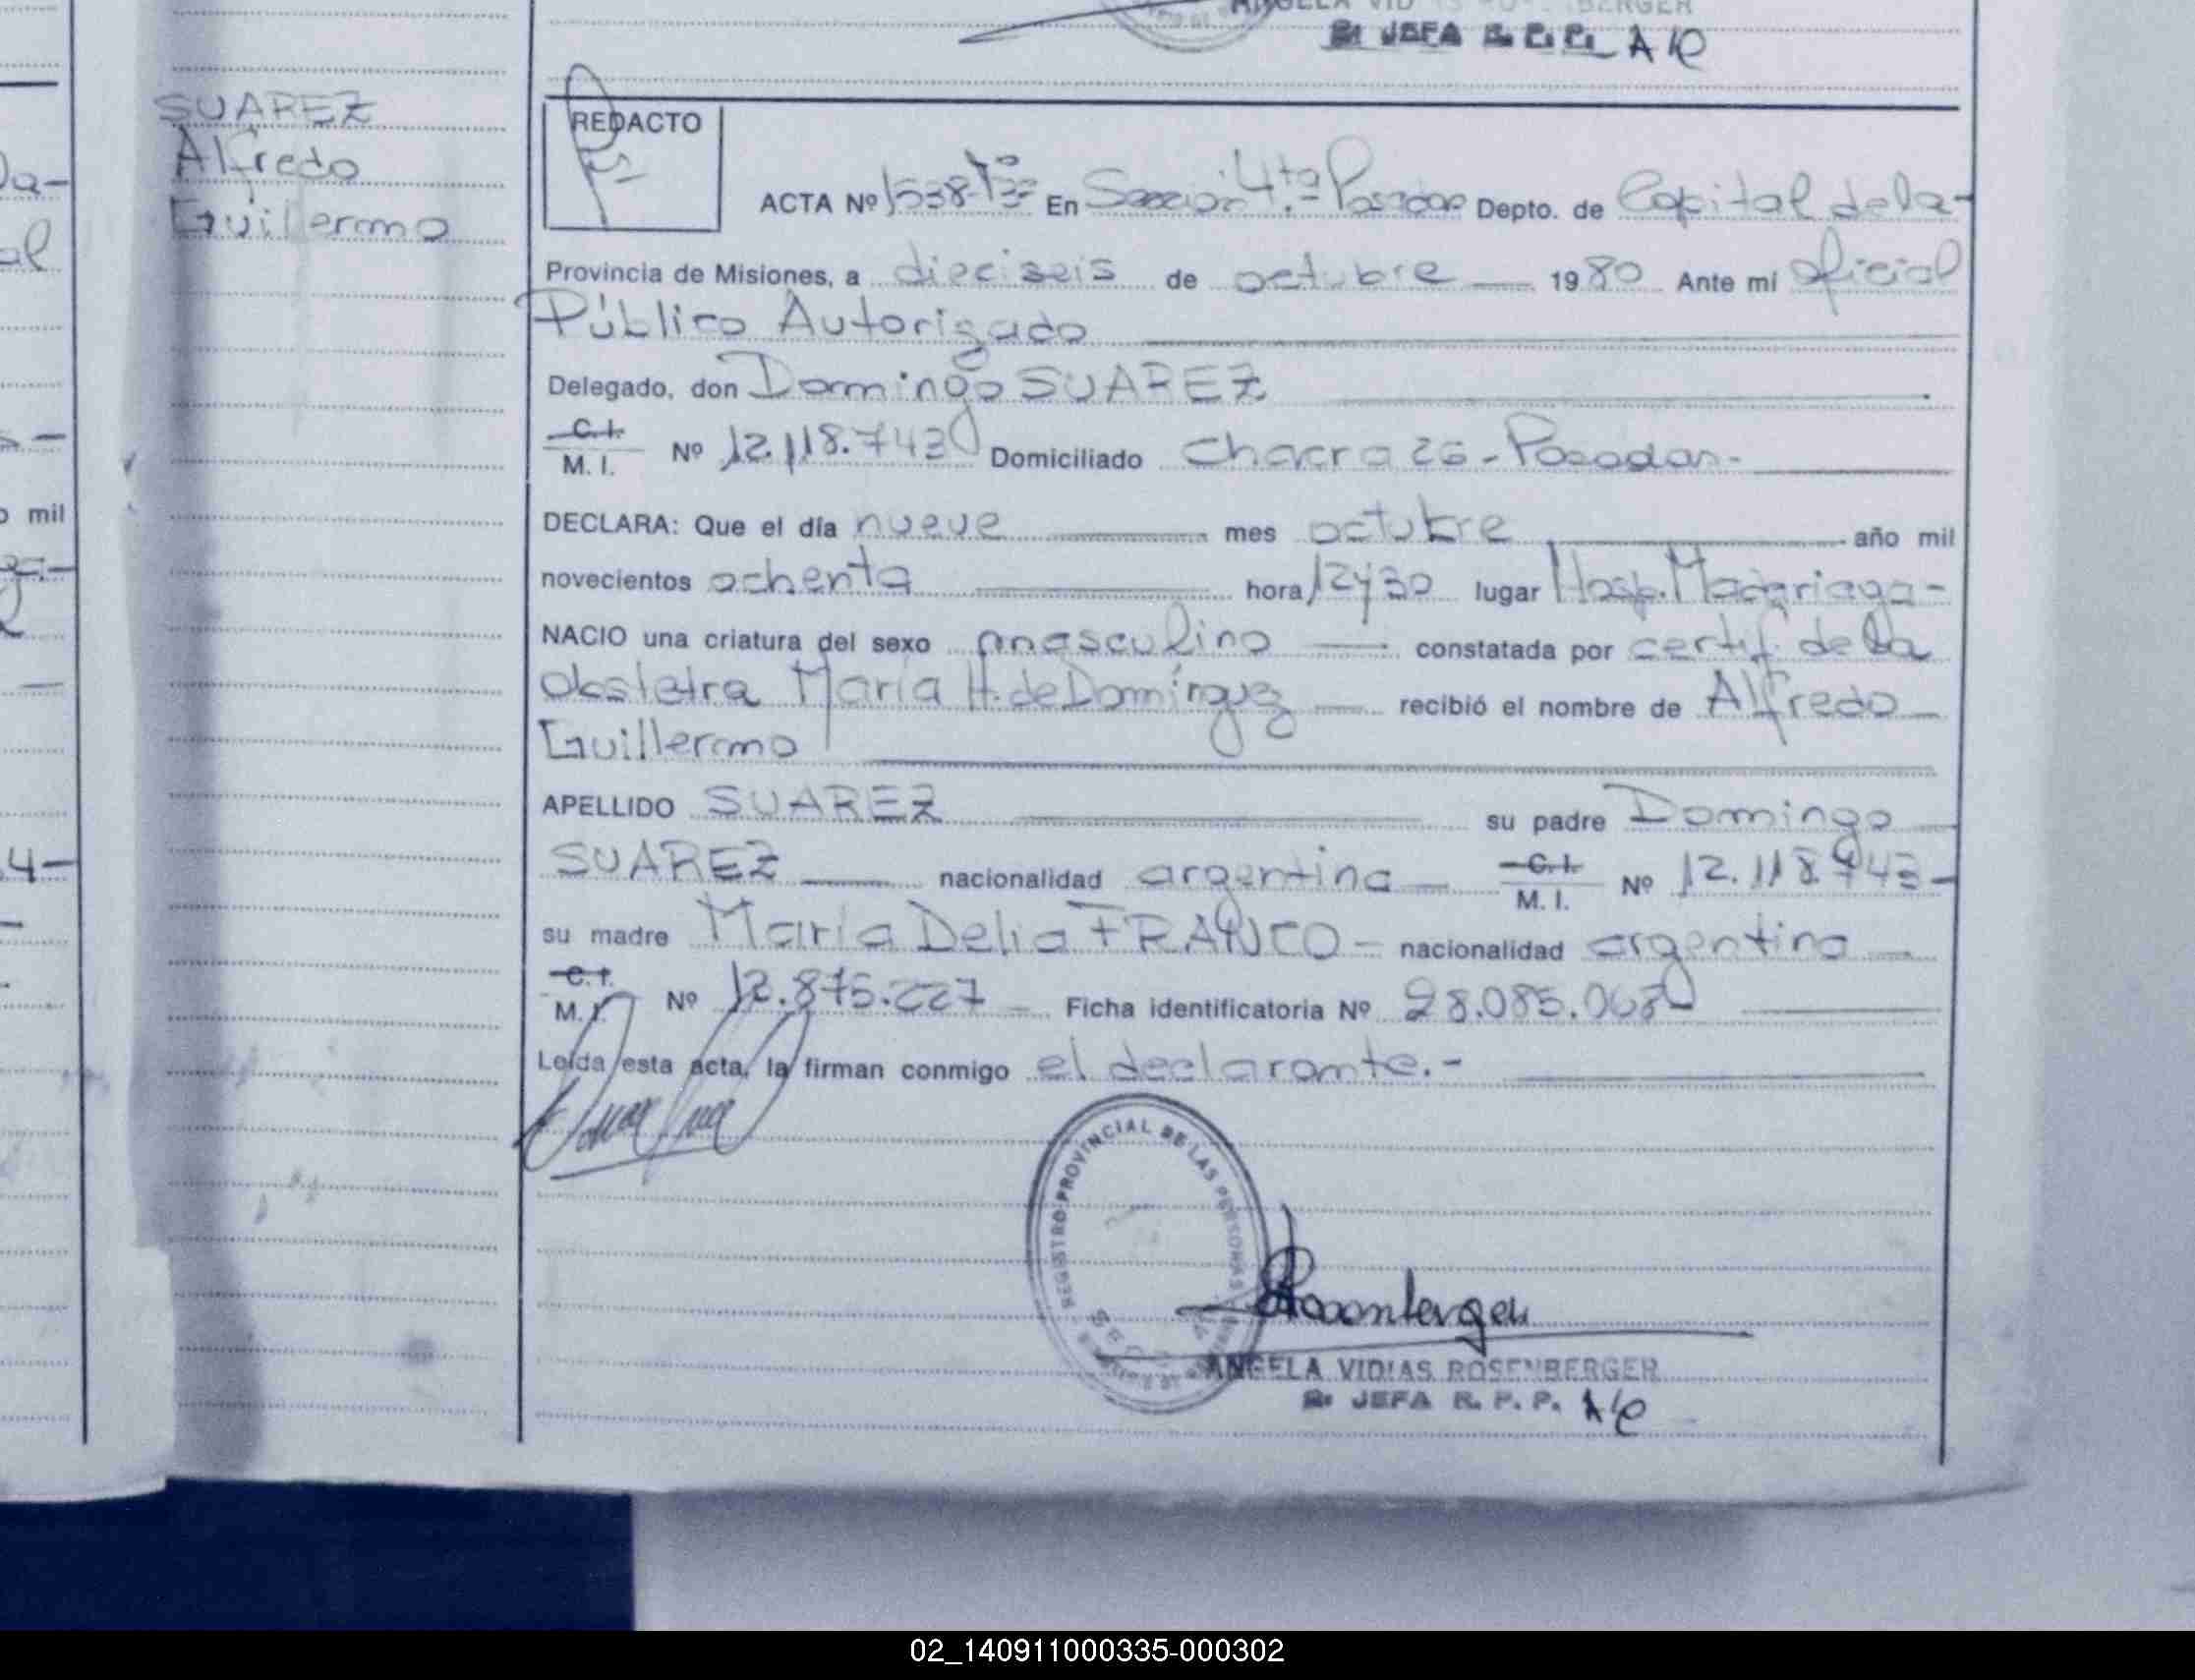 SUAREZ
Alfredo
Guillermo
JEFA
REDACTO
ACTA Nº 1538 Tº En Sección 4ta. Posadas Depto. de Capital de la-
Provincia de Misiones, a dieciseis de octubre 1980 Ante mi oficial
Público Autorizado
Delegado, don Domingo SUAREZ
C. I.
M. I. Nº 12.118.743 Domiciliado Chacra 26 - Posadas-
DECLARA: Que el día nueve mes octubre año mil
novecientos ochenta hora 12y30 lugar Hosp. Madariaga-
NACIO una criatura del sexo masculino constatada por certif. de la
obstetra María H. de Domínguez recibió el nombre de Alfredo
Guillermo
APELLIDO SUAREZ su padre Domingo
SUAREZ nacionalidad argentina C. I. M. I. Nº 12.118.743-
su madre María Delia FRANCO - nacionalidad argentina
C. I.
M. I. Nº 12.875.227 Ficha identificatoria Nº 28.085.063
Leída esta acta, la firman conmigo el declarante.-
REGISTRO PROVINCIAL DE LAS PERSONAS
Rosenberger
ANGELA VIDIAS ROSENBERGER
JEFA R. P. P. A/C
al
o mil
4-
02_140911000335-000302